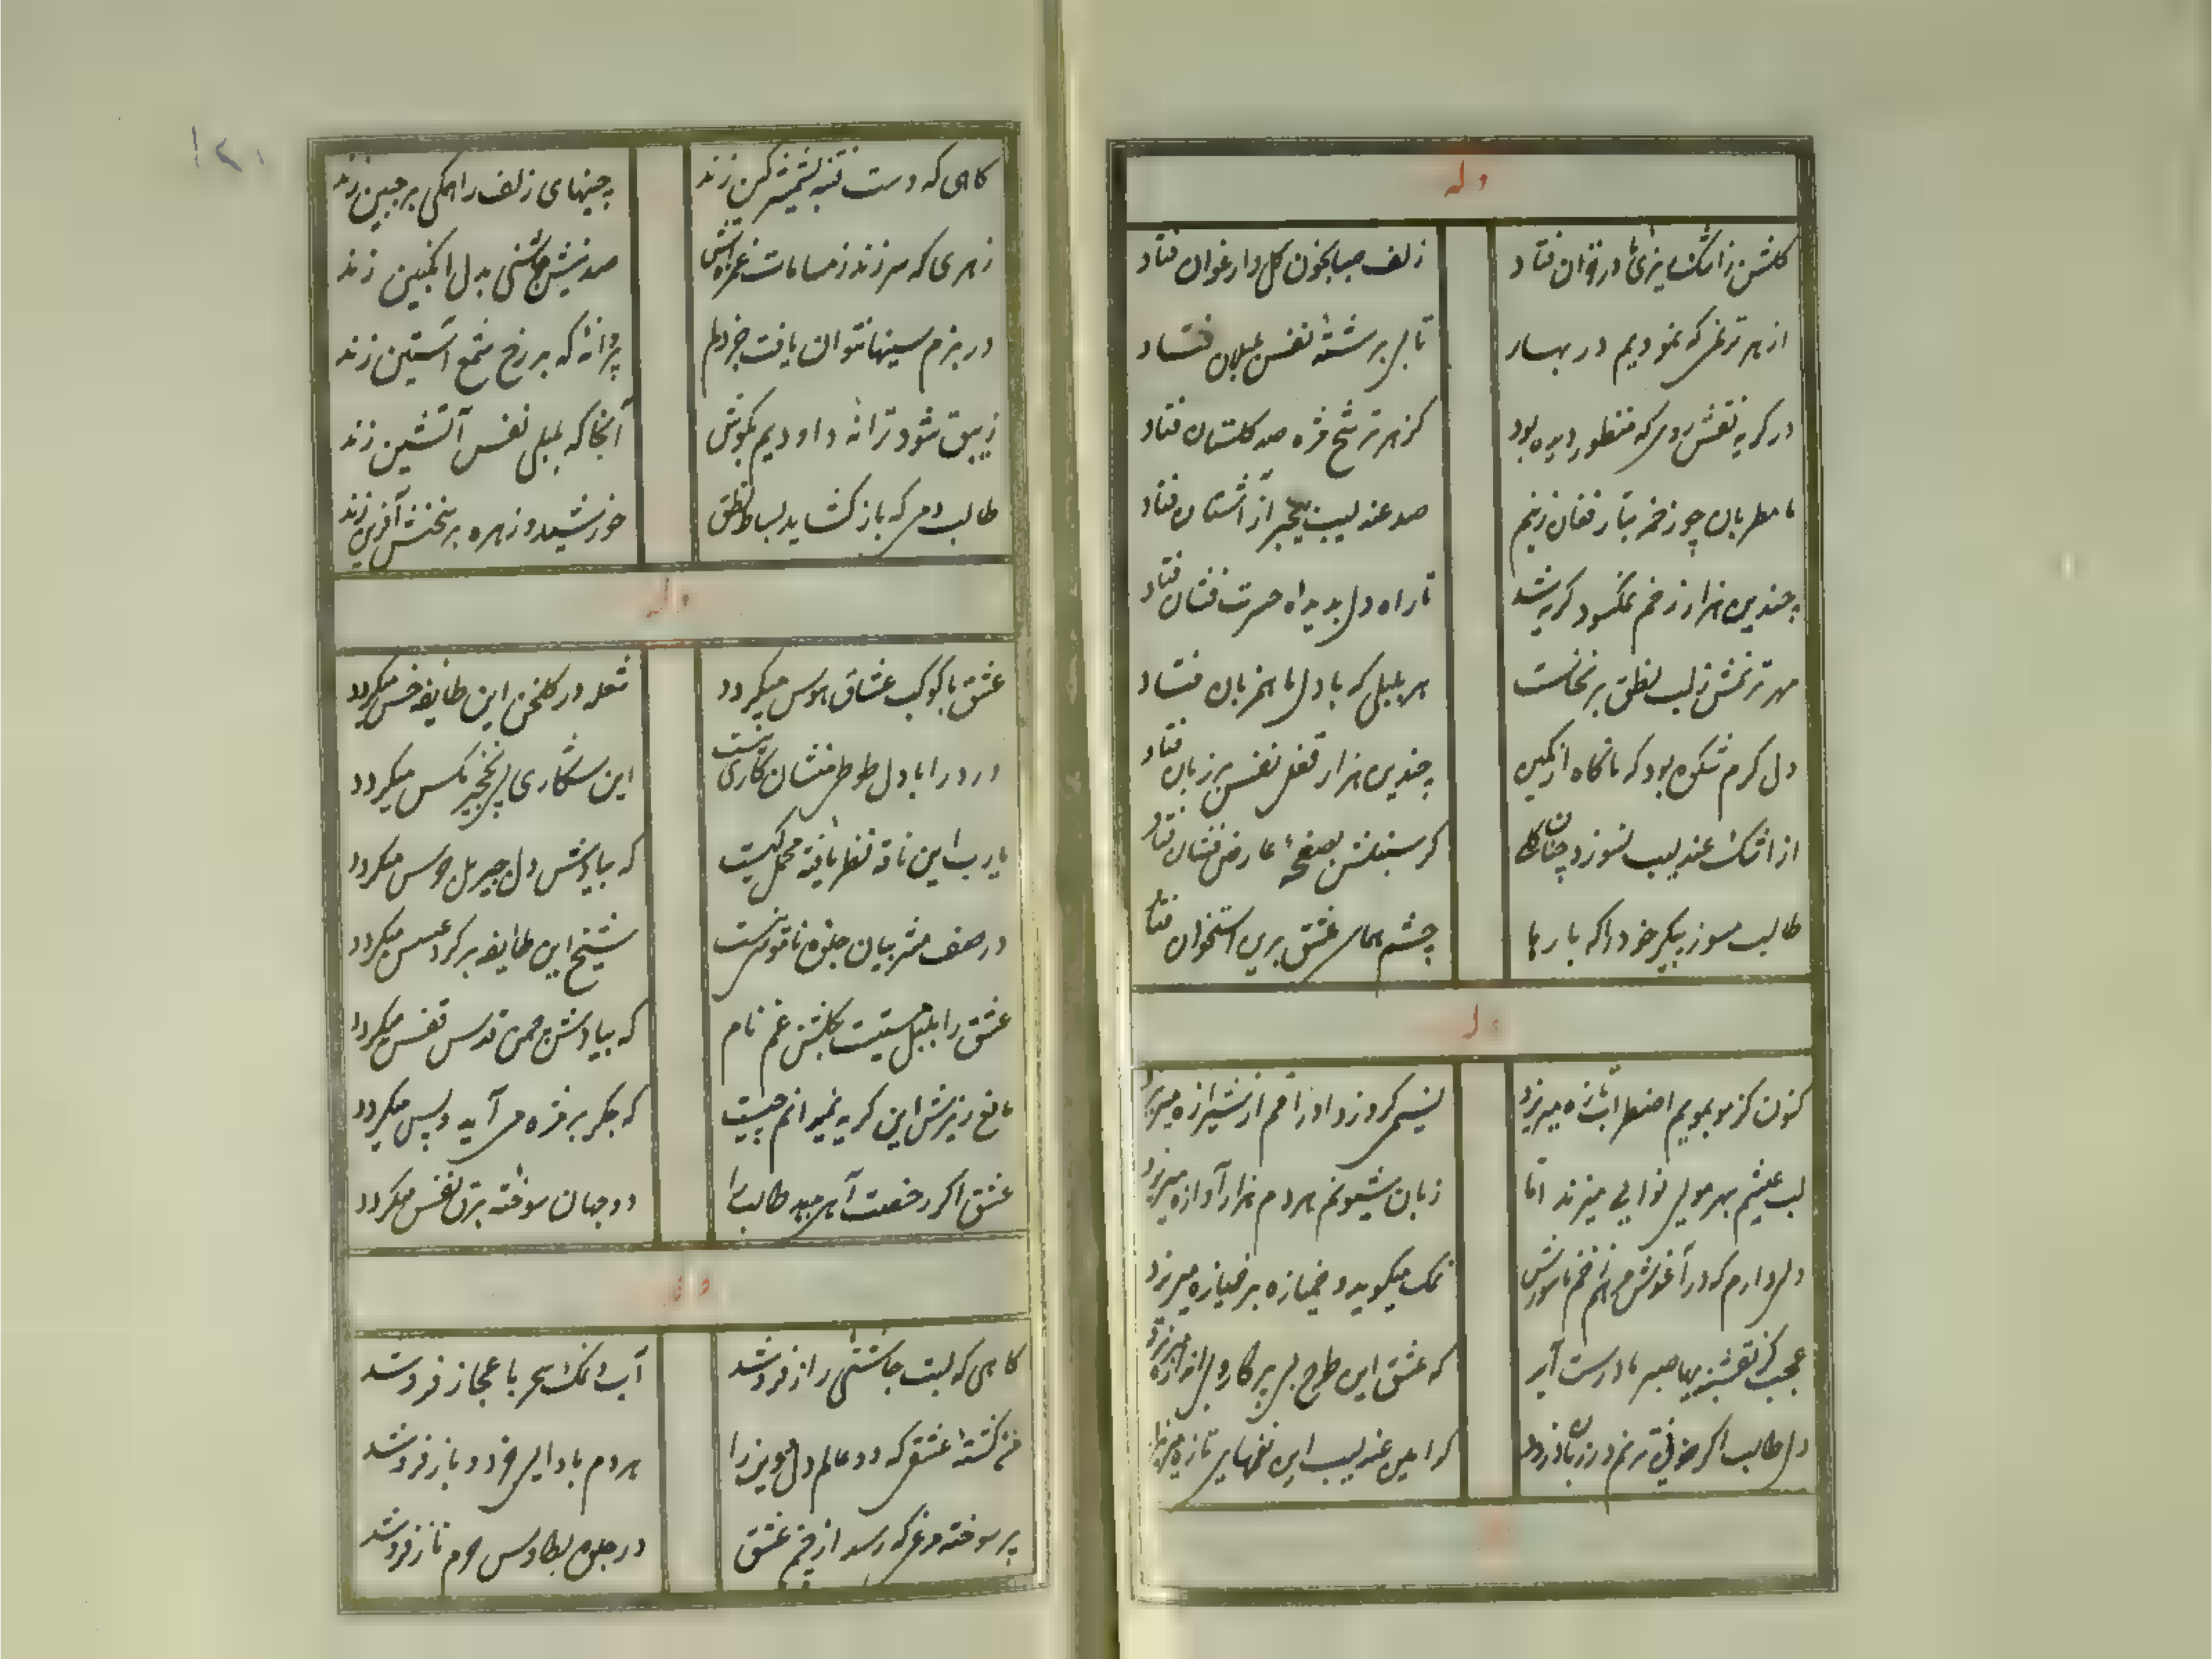 وله
گلشن ز اشک ریزی ما در خزان فتاد
زلف صبا بخون گل و ارغوان فتاد
از هر ترنمی که نمودیم در بهار
تابی بر رشته نفس بلبلان فتاد
در گریه نقش روی که منظور دیده بود
کز هر ترشح مژه صد گلستان فتاد
با مطربان چو زخمه بتار فغان زنیم
صد عندلیب بیخبر از آشیان فتاد
چندین هزار زخم نمکسود گریه شد
تا راه دل بدیده حسرت فشان فتاد
مهر ترنمش ز لب نطق برنخاست
هر بلبلی که با دل ما همزبان فتاد
دل گرم شکوه بود که ناگاه از کمین
چندین هزار قفل نفس بر زبان فتاد
از اشک عندلیب نسوزد چنان
کز سنبلش بصفحه عارض فشان فتاد
طالب بسوز پیکر خود را که بارها
چشم همای عشق برین استخوان فتاد
وله
کنون کز مو بمویم اضطراب تازه میریزد
نسیمی گر وزد اوراقم از شیرازه میریزد
لب عیشم بهر مویی نوایی میزند اما
زبان شیونم هر دم هزار آوازه میریزد
دلی دارم که در آغوش مرهم زخم ناسورش
نمک میگوید و خمیازه بر خمیازه میریزد
عجب کز نقشبندیها صبر ما درست آید
که عشق این طرح بی پرگار و بی اندازه میریزد
دل طالب اگر ذوق ترنم در
کز امین عندلیب این نغمهای تازه میریزد
۱۲۰
گاهی که دست فتنه بشمشیر کین زند
چینهای زلف را همگی بر جبین زند
زهری که سر زند ز مسامات غمزه‌اش
صد نیش چاشنی بدل انگبین زند
در بزم سینها نتوان یافت جز دلم
پروانه که بر رخ شمع آستین زند
زیبق شود ترانه داودیم بگوش
آنجا که بلبلی نفس آتشین زند
طالب دمی که باز گشاید بساط نطق
خورشید و زهره بر سخنش آفرین زند
وله
عشق با کوکب عشاق هوس میگردد
شعله در گلخن این طایفه خس میگردد
درد را با دل منشان کاری نیست
این شکاری پی نخجیر مگس میگردد
یارب این ناقه نظر یافته محمل کیست
که بیادش دل جبریل جرس میگردد
در صف مشربیان جلوه ناقوسی هست
شیخ این طایفه بر گرد عسس میگردد
عشق را بلبل مستیست بگلشن غم نام
که بیادش چمن قدس قفس میگردد
مانع ریزش این گریه نمیدانم چیست
که جگر بر مژه می آید و پس میگردد
عشق اگر رخصت آهی بدهد طالب را
دو جهان سوخته برق نفس میگردد
وله
گاهی که لبت چاشنی راز فروشد
آب و نمک سحر باعجاز فروشد
من کشته عشقی که دو عالم دل و دین را
هر دم بادایی خرد و باز فروشد
پر سوخته مرغی که رسد از چمن عشق
در جلوه بطاوس حرم ناز فروشد